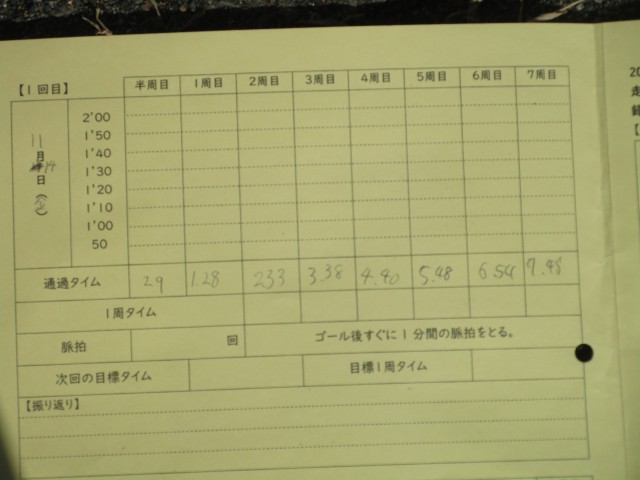 【1回目】 半周目 1周目 2周目 3周目 4周目 5周目 6周目 7周目
11月14日
2'00
1'50
1'40
1'30
1'20
1'10
1'00
50
通過タイム 29 1.28 2.33 3.38 4.40 5.48 6.54 7.48
1周タイム
脈拍 回 ゴール後すぐに1分間の脈拍をとる。
次回の目標タイム 目標1周タイム
【振り返り】
20
走